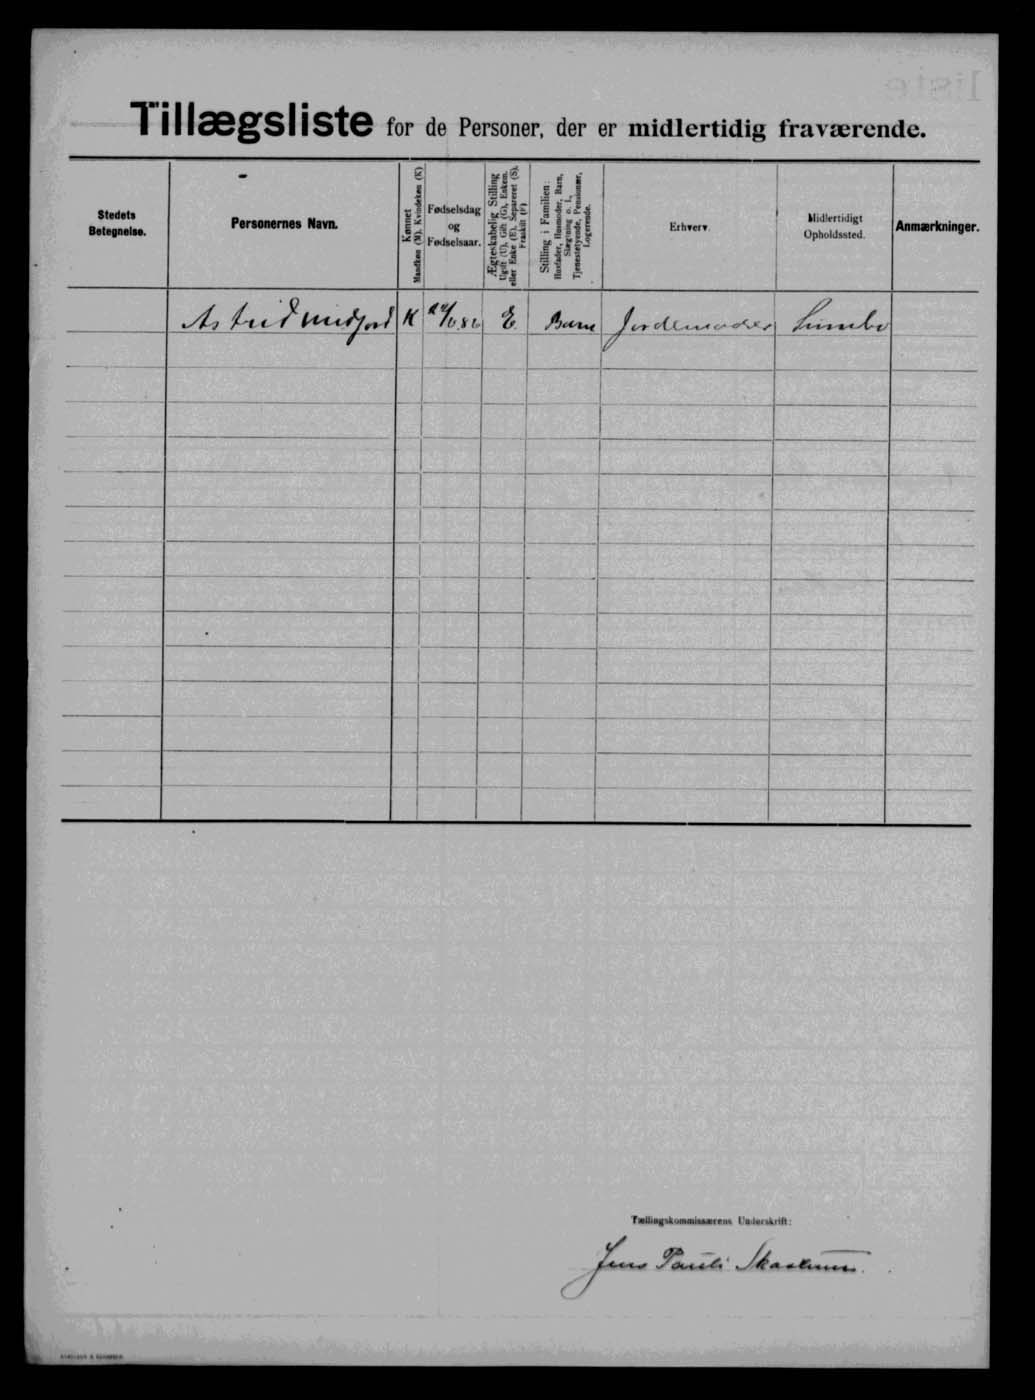 Tillægsliste for de Personer, der er midlertidig fraværende.
Stedets Betegnelse.
Personernes Navn.
Kønnet
Mandkøn (M). Kvindekøn (K)
Fødselsdag
og
Fødselsaar.
Ægteskabelig Stilling
Ugift (U), Gift (G), Enkem.
eller Enke (E), Separeret (S),
Fraskilt (F)
Stilling i Familien:
Husfader, Husmoder, Barn,
Slægtning o. l.,
Tjenestetyende, Pensionær,
Logerende.
Erhverv.
Midlertidigt
Opholdssted.
Anmærkninger.
Astrid Midjord K E Barn Jordemoder Sumbø
Tællingskommissærens Underskrift:
Jens Pauli